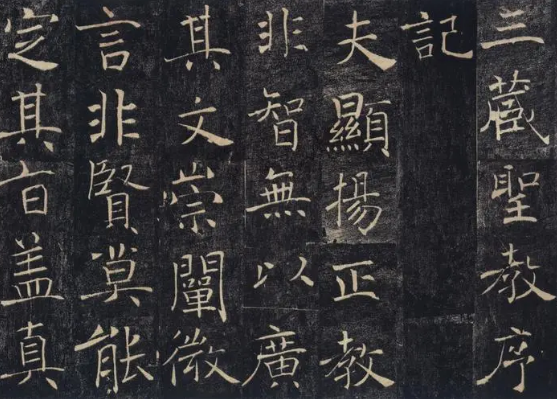 三藏聖教序
記
夫顯揚正教
非智無以廣
其文崇闡微
言非賢莫能
定其旨盖真